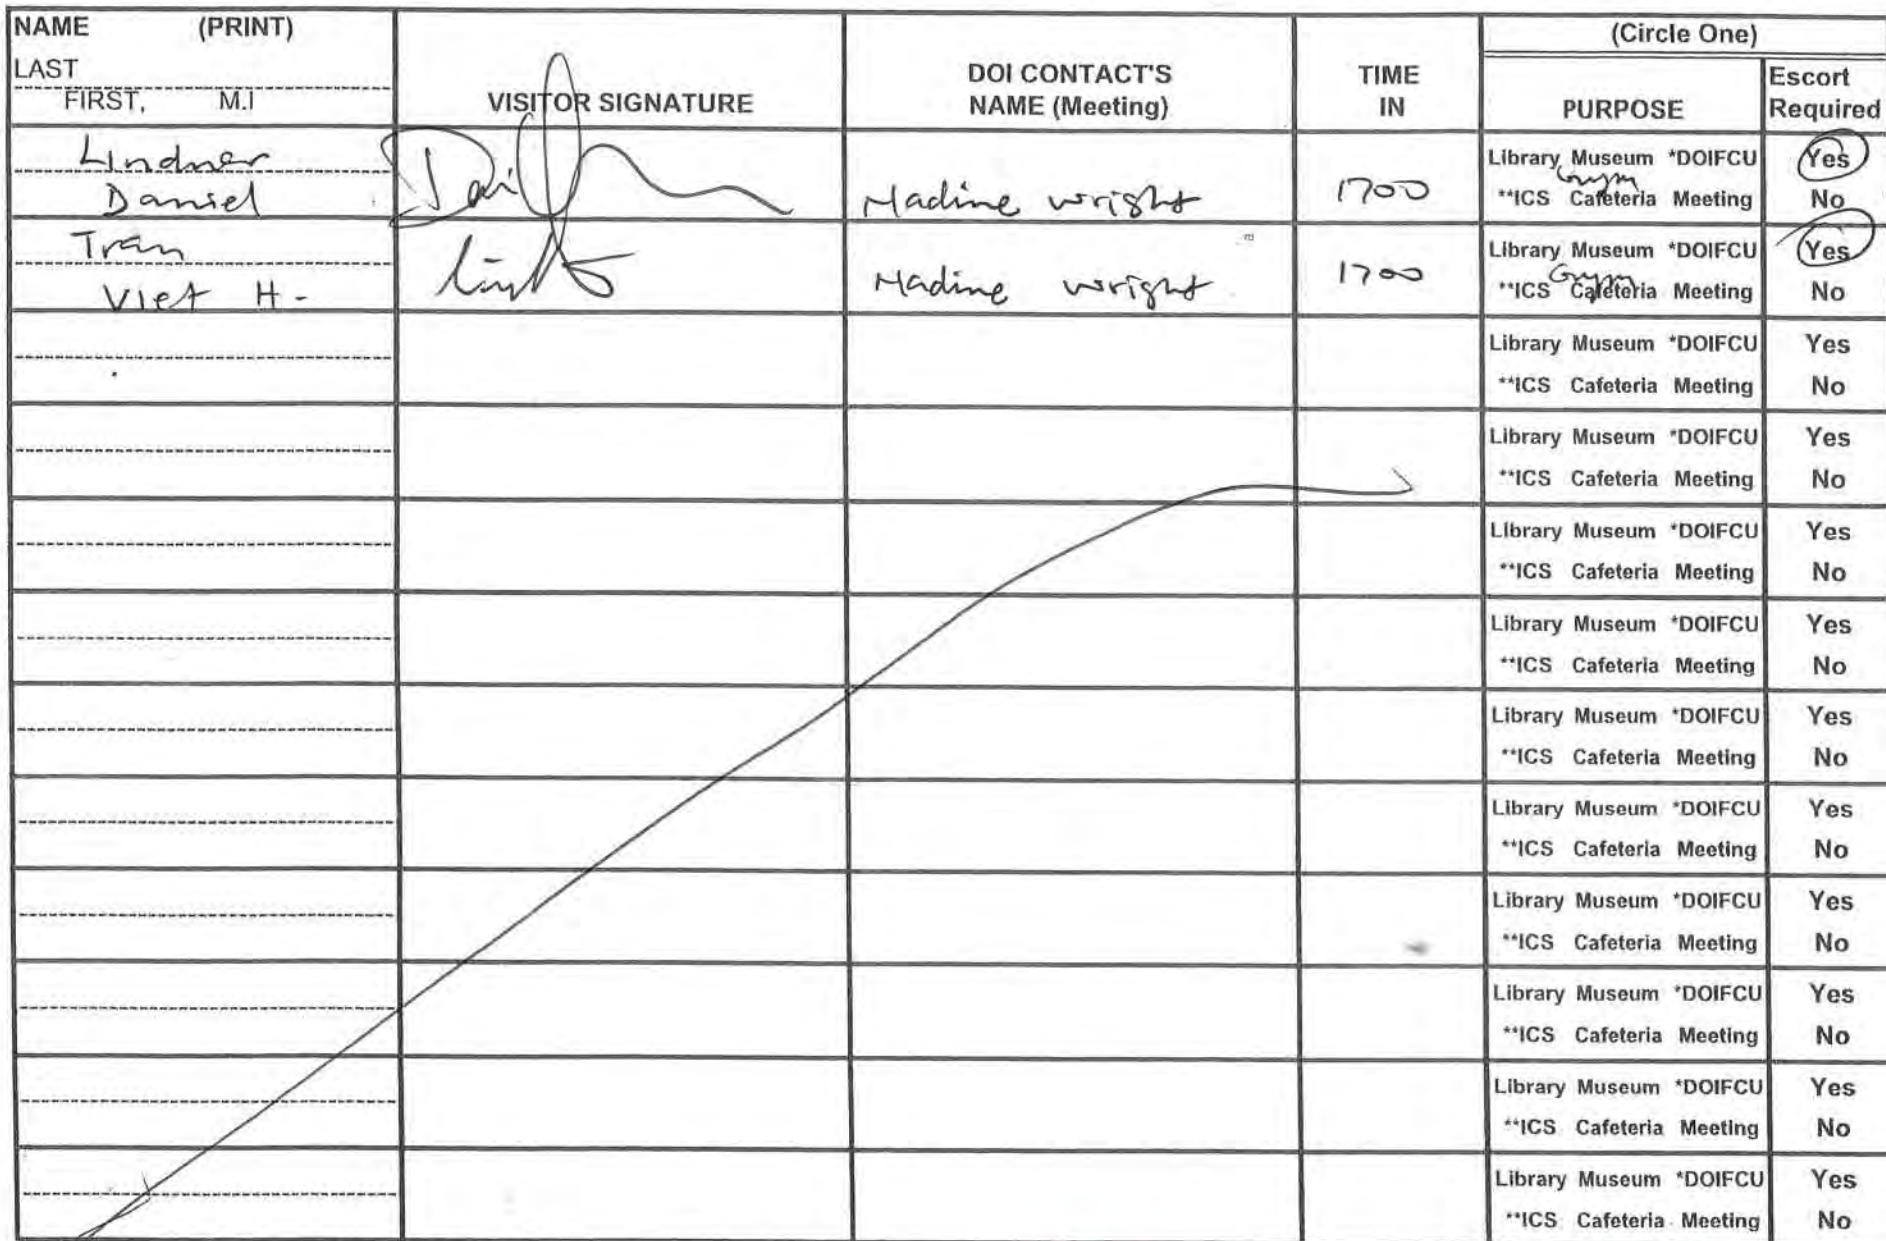 NAME (PRINT)
LAST
FIRST, M.I
VISITOR SIGNATURE
DOI CONTACT'S
NAME (Meeting)
TIME
IN
(Circle One)
PURPOSE
Escort
Required
Lindner
Daniel
Nadine Wright
1700
Library Museum *DOIFCU
Gym
**ICS Cafeteria Meeting
Yes
No
Tran
Viet H.
Nadine Wright
1700
Library Museum *DOIFCU
Gym
**ICS Cafeteria Meeting
Yes
No
Library Museum *DOIFCU
**ICS Cafeteria Meeting
Yes
No
Library Museum *DOIFCU
**ICS Cafeteria Meeting
Yes
No
Library Museum *DOIFCU
**ICS Cafeteria Meeting
Yes
No
Library Museum *DOIFCU
**ICS Cafeteria Meeting
Yes
No
Library Museum *DOIFCU
**ICS Cafeteria Meeting
Yes
No
Library Museum *DOIFCU
**ICS Cafeteria Meeting
Yes
No
Library Museum *DOIFCU
**ICS Cafeteria Meeting
Yes
No
Library Museum *DOIFCU
**ICS Cafeteria Meeting
Yes
No
Library Museum *DOIFCU
**ICS Cafeteria Meeting
Yes
No
Library Museum *DOIFCU
**ICS Cafeteria Meeting
Yes
No